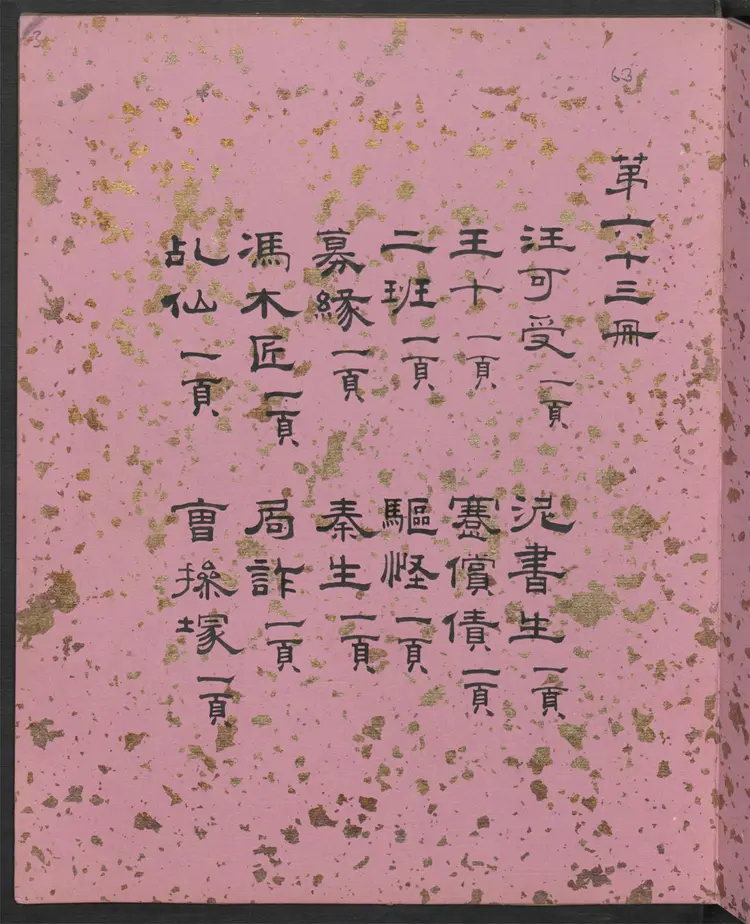 63
3
第六十三冊
汪可受 一頁
泥書生 一頁
王十 一頁
蹇償債 一頁
二班 一頁
驅怪 一頁
募緣 一頁
秦生 一頁
馮木匠 一頁
局詐 一頁
乩仙 一頁
曹操塚 一頁